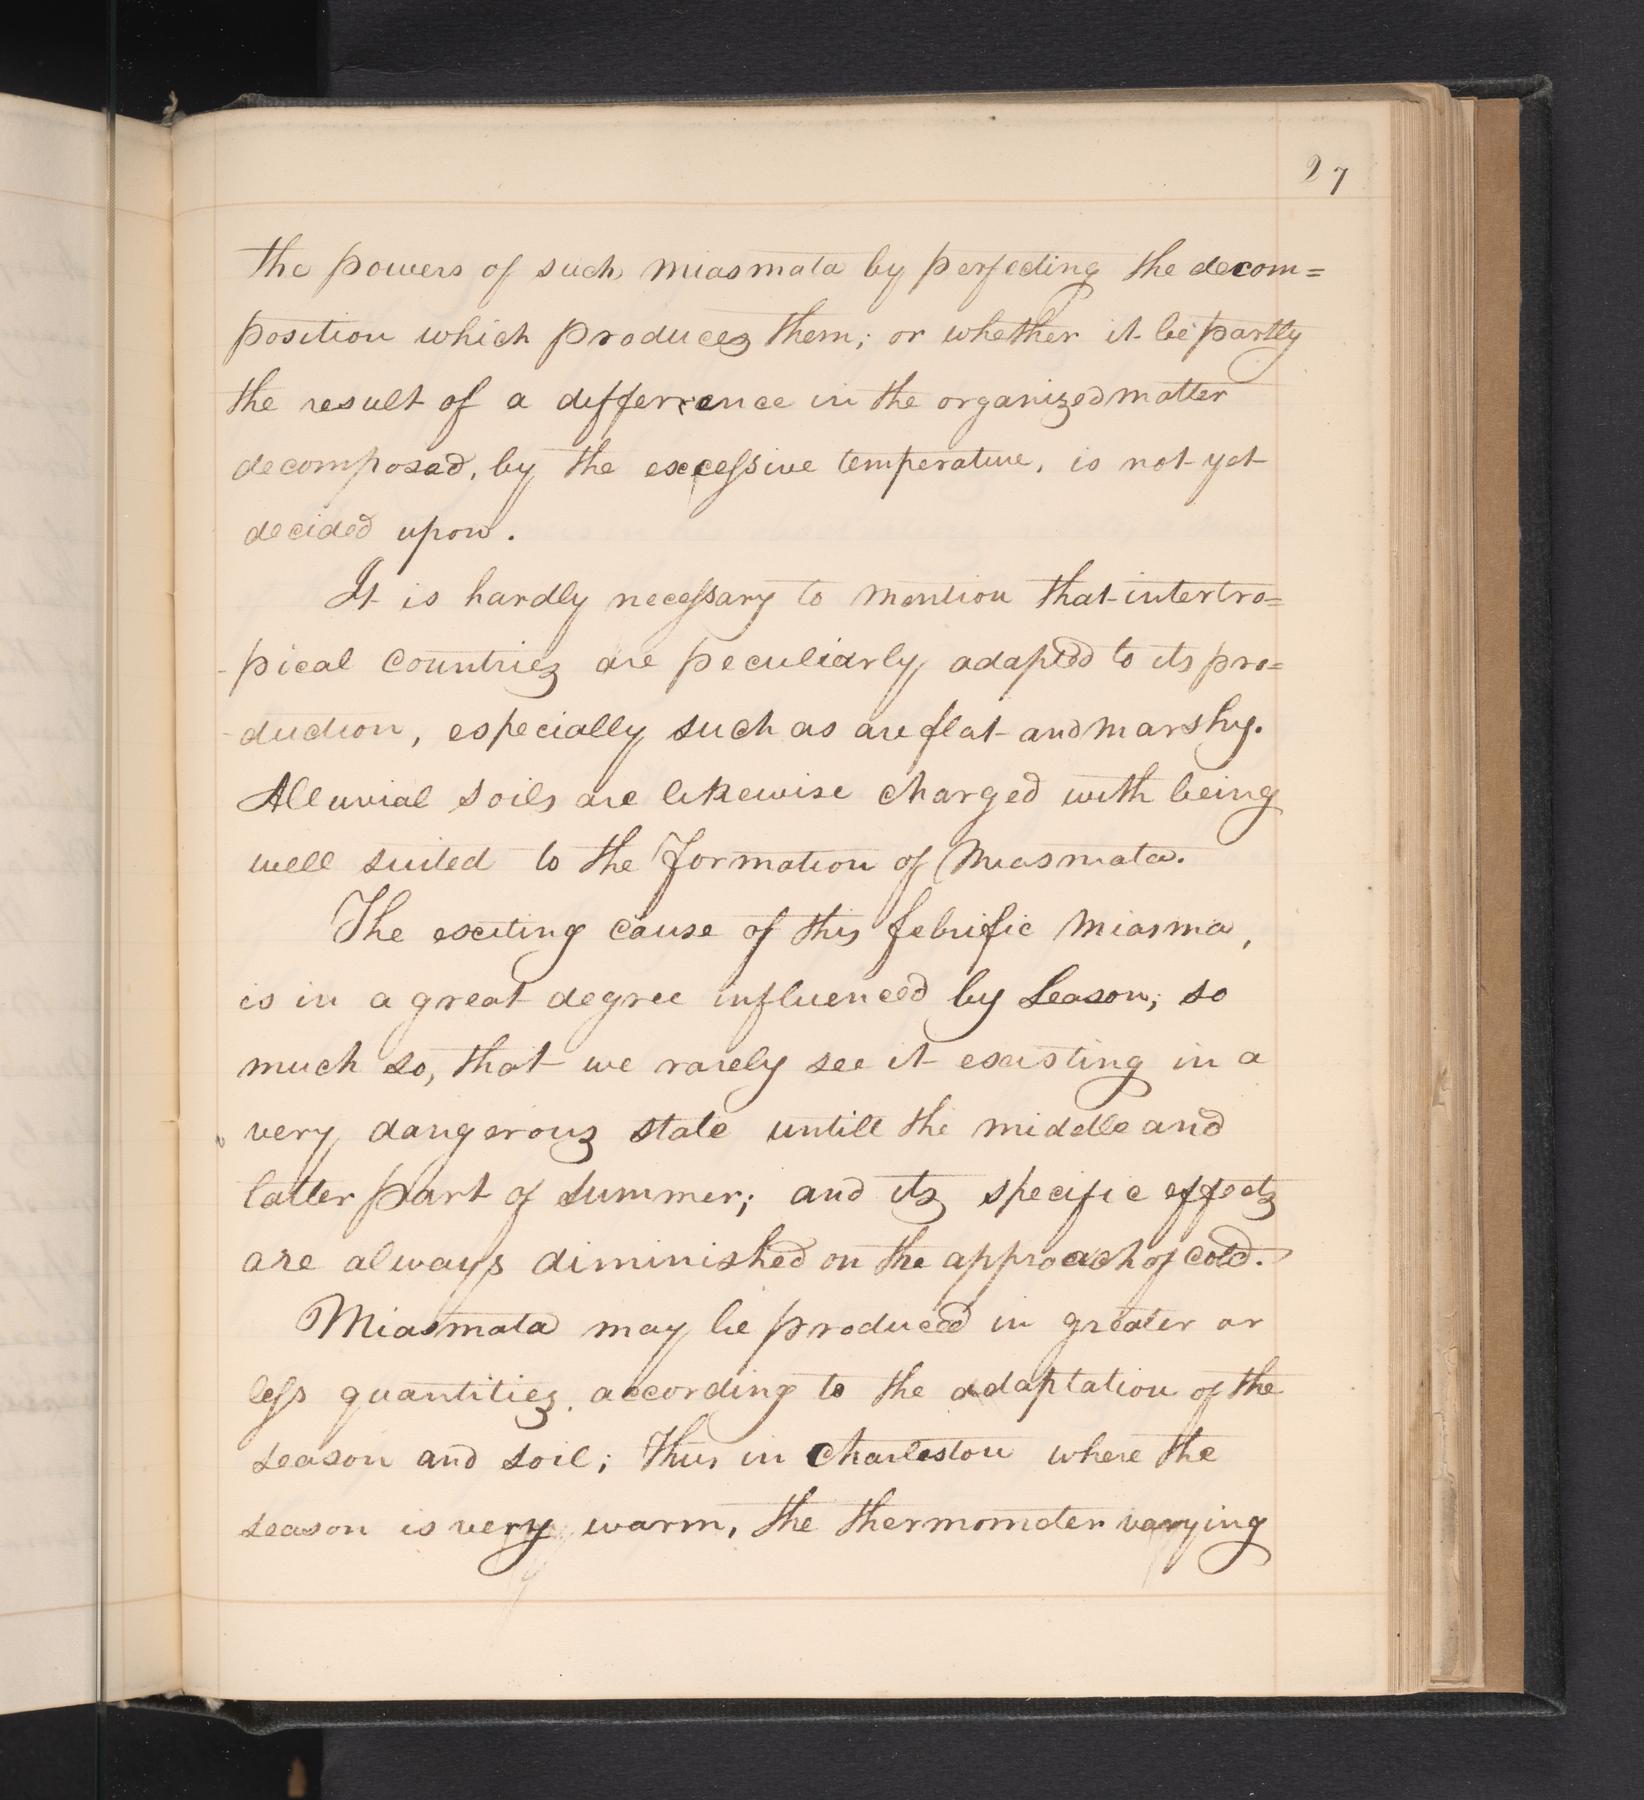 27
the powers of such miasmata by perfecting the decom=
position which produces them; or whether it be partly
the result of a differrence in the organized matter
decomposed, by the excessive temperature, is not yet
decided upon.
It is hardly necessary to mention that intertro=
-pical Countries are peculiarly adapted to its pro=
-duction, especially such as are flat and marshy.
Alluvial soils are likewise charged with being
well suited to the formation of Miasmata.
The exciting cause of this febrific Miasma,
is in a great degree influenced by Season; so
much so, that we rarely see it existing in a
very dangerous state untill the middle and
latter part of Summer; and its specific effects
are always diminished on the approach of cold.
Miasmata may be produced in greater or
less quantities, according to the adaptation of the
season and soil; Thus in Charleston where the
season is very warm, the thermometer varying